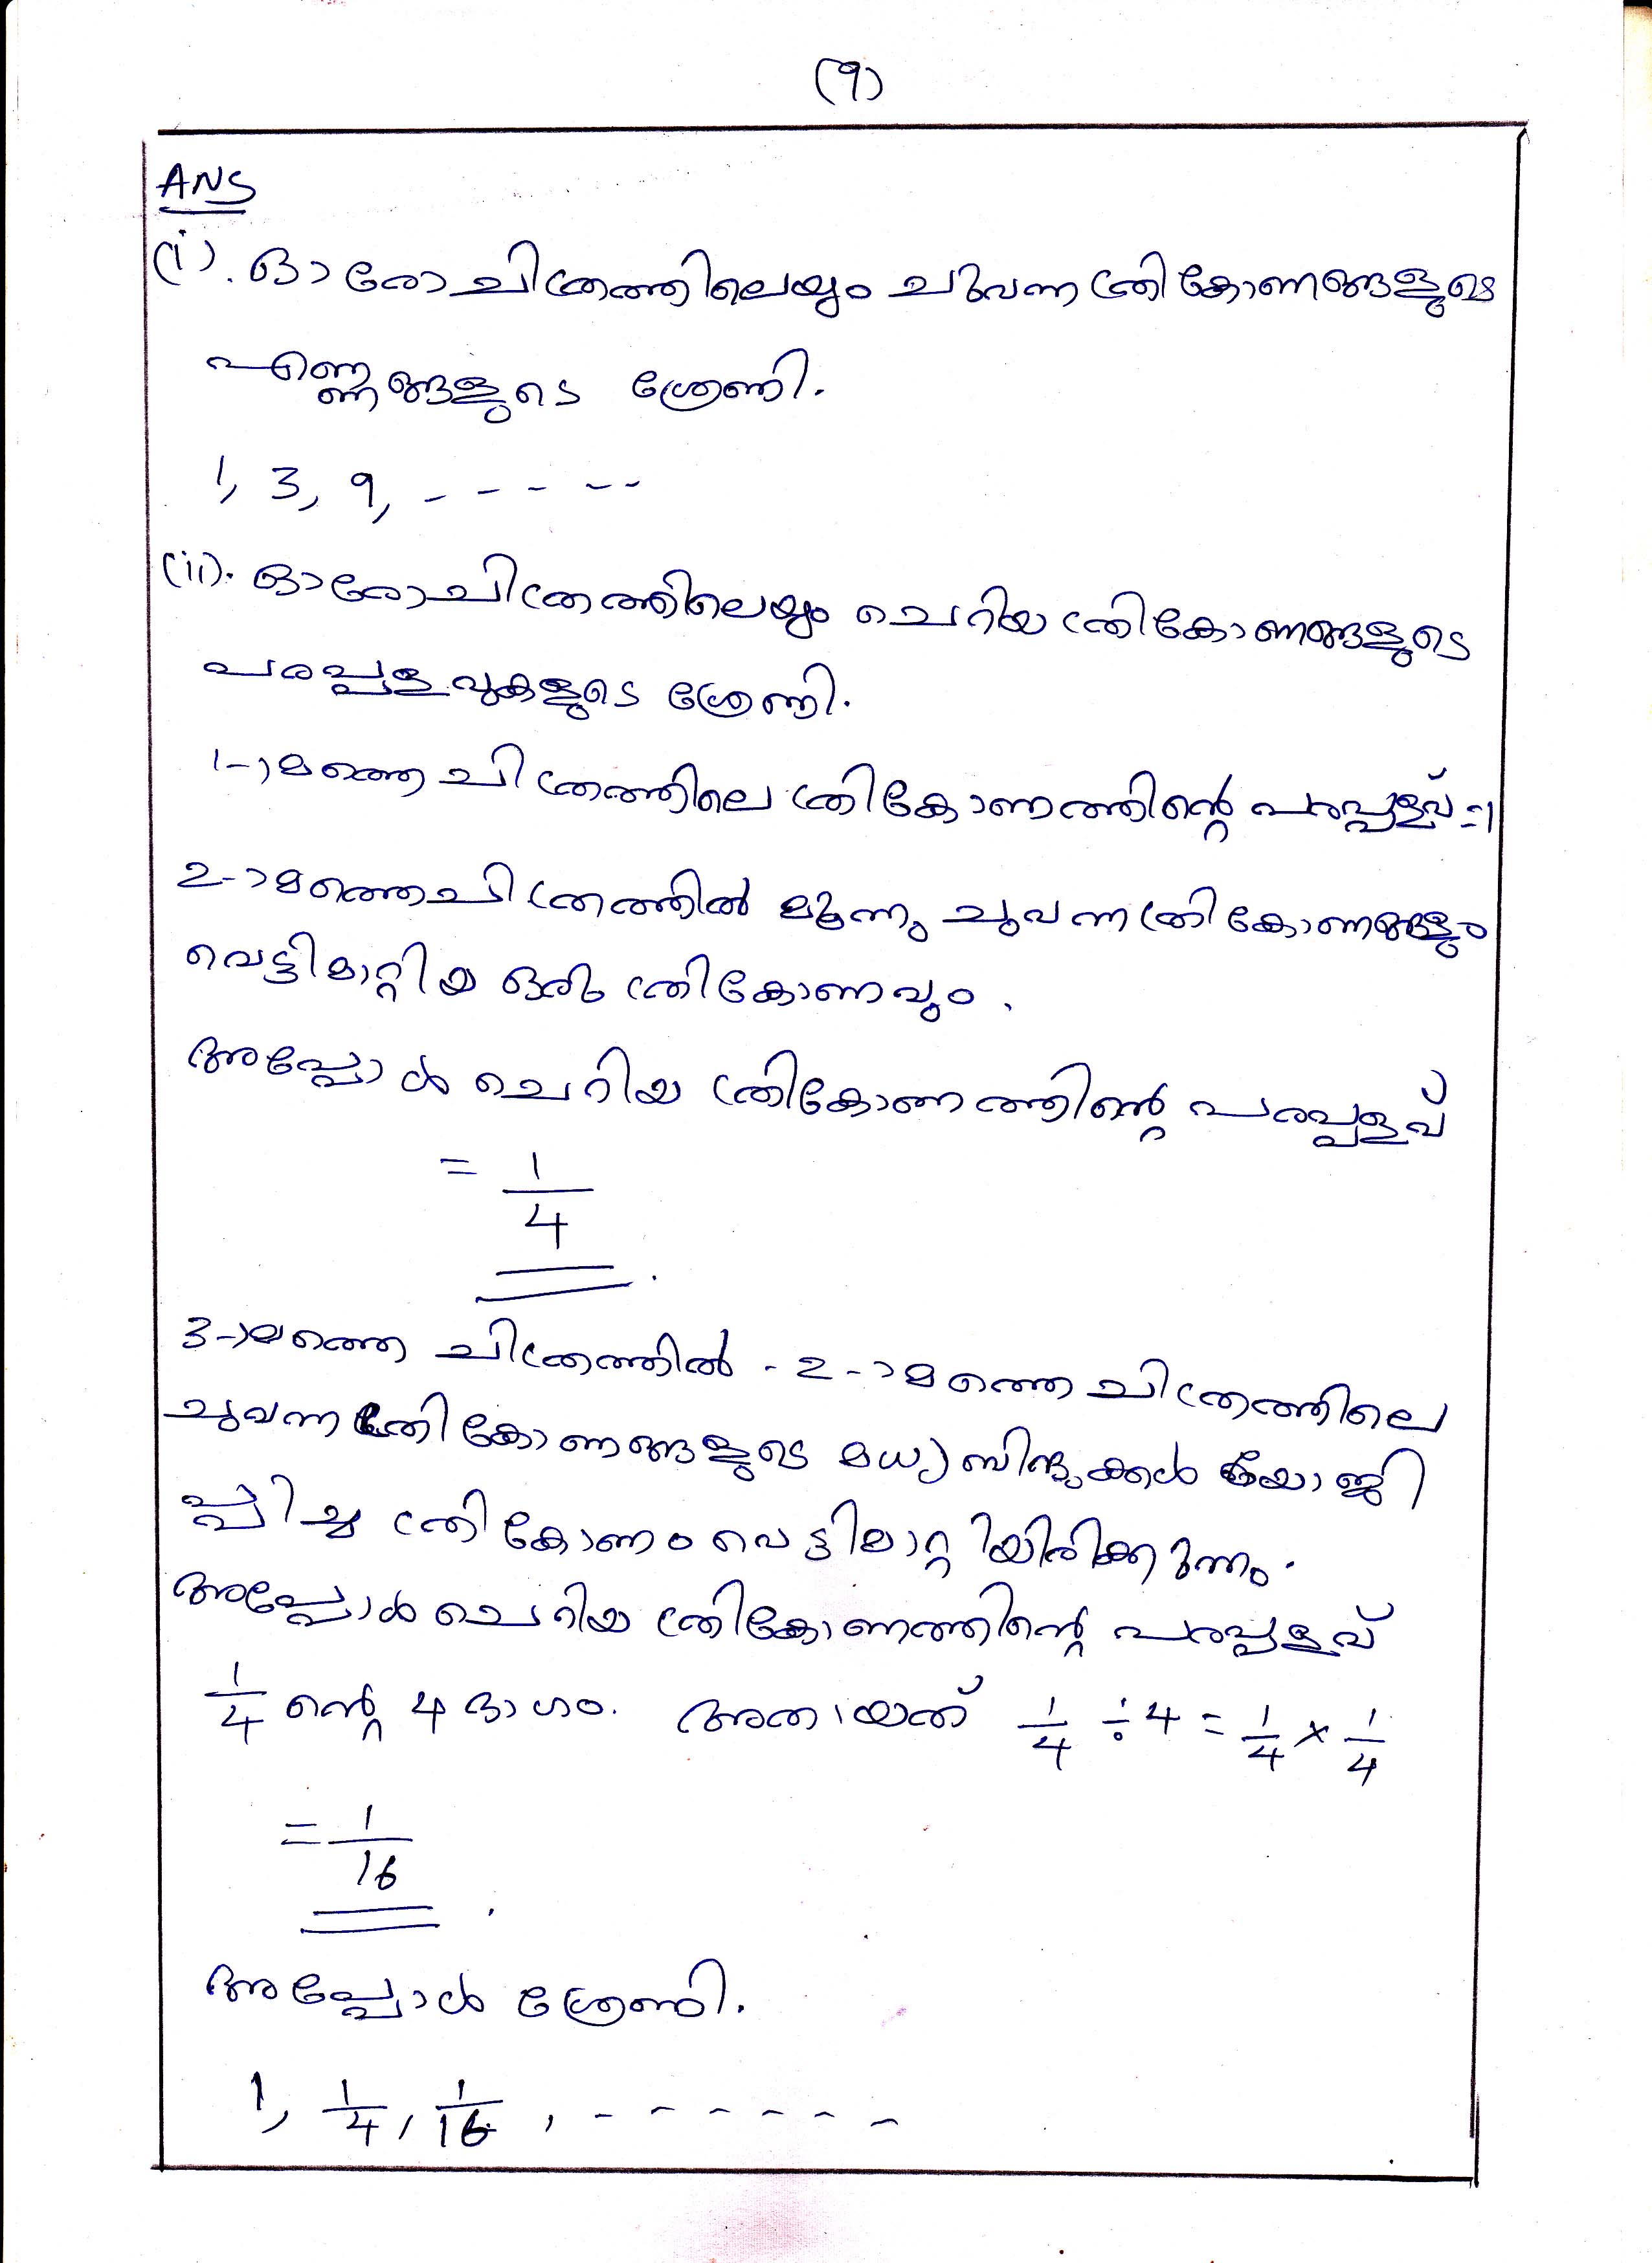 (9)
ANS
(i). ഓരോ ചിത്രത്തിലെയും ചുവന്ന ത്രികോണങ്ങളുടെ
എണ്ണങ്ങളുടെ ശ്രേണി.
1, 3, 9, - - - - -
(ii). ഓരോ ചിത്രത്തിലെയും ചെറിയ ത്രികോണങ്ങളുടെ
പരപ്പളവുകളുടെ ശ്രേണി.
1-ാമത്തെ ചിത്രത്തിലെ ത്രികോണത്തിന്റെ പരപ്പളവ് =1
2-ാമത്തെ ചിത്രത്തിൽ മൂന്നു ചുവന്ന ത്രികോണങ്ങളും
വെട്ടിമാറ്റിയ ഒരു ത്രികോണവും.
അപ്പോൾ ചെറിയ ത്രികോണത്തിന്റെ പരപ്പളവ്
= 1/4.
3-ാമത്തെ ചിത്രത്തിൽ - 2-ാമത്തെ ചിത്രത്തിലെ
ചുവന്ന ത്രികോണങ്ങളുടെ മധ്യബിന്ദുക്കൾ യോജി
പ്പിച്ച ത്രികോണം വെട്ടിമാറ്റിയിരിക്കുന്നു.
അപ്പോൾ ചെറിയ ത്രികോണത്തിന്റെ പരപ്പളവ്
1/4 ന്റെ 4 ഭാഗം. അതായത് 1/4 ÷ 4 = 1/4 × 1/4
= 1/16.
അപ്പോൾ ശ്രേണി.
1, 1/4, 1/16, - - - - - -